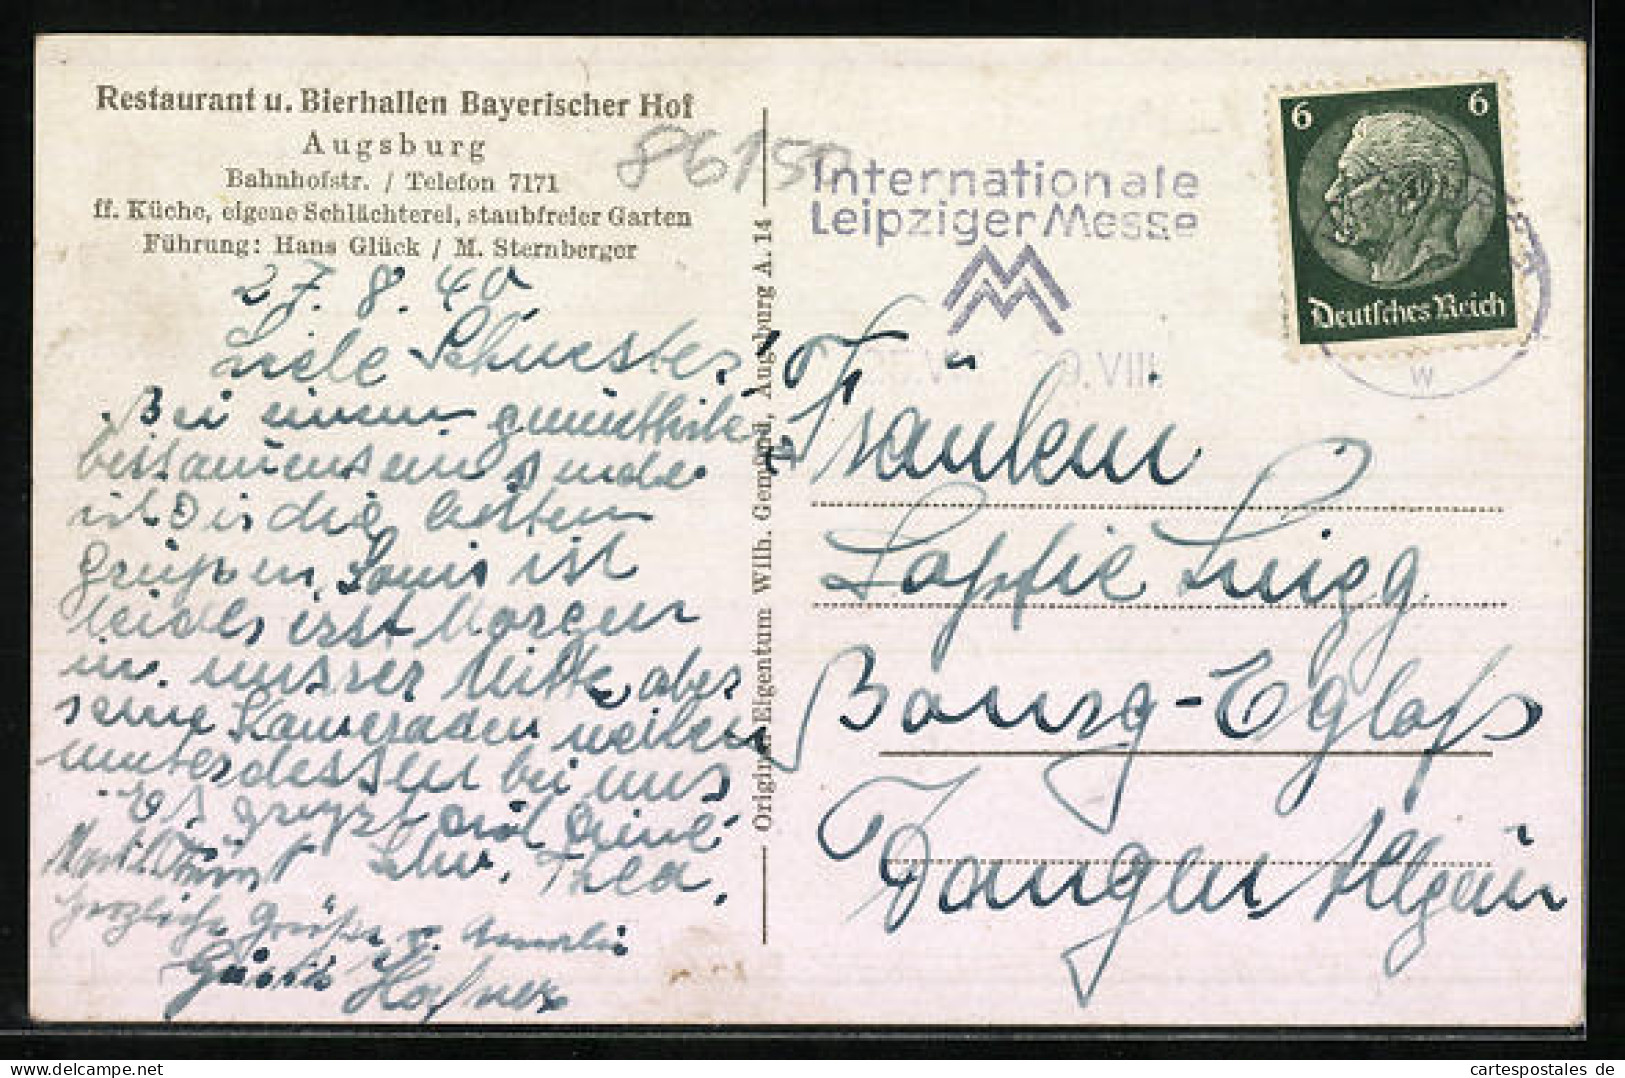 Restaurant u. Bierhallen Bayerischer Hof
Augsburg
Bahnhofstr. / Telefon 7171
ff. Küche, eigene Schlächterei, staubfreier Garten
Führung: Hans Glück / M. Sternberger
86150
27. 8. 40
Liebe Schwester!
Bei einem gemütlichen
beisammensein sende
ich Dir die besten
Grüße
leider erst Morgen
in unsrer Mitte, aber
seine Kameraden weilen
unterdessen bei uns
Es grüßt Dich Deine
Schw. Thea.
herzliche Grüße v.
Hafner
Original Eigentum Wilh. Gemünd, Augsburg A. 14
Internationale
Leipziger Messe
MM
VIII.
6 6
Deutsches Reich
w
Fräulein
Luigg
Bourg-Egloß
Wangen Allgäu
cartespostales de